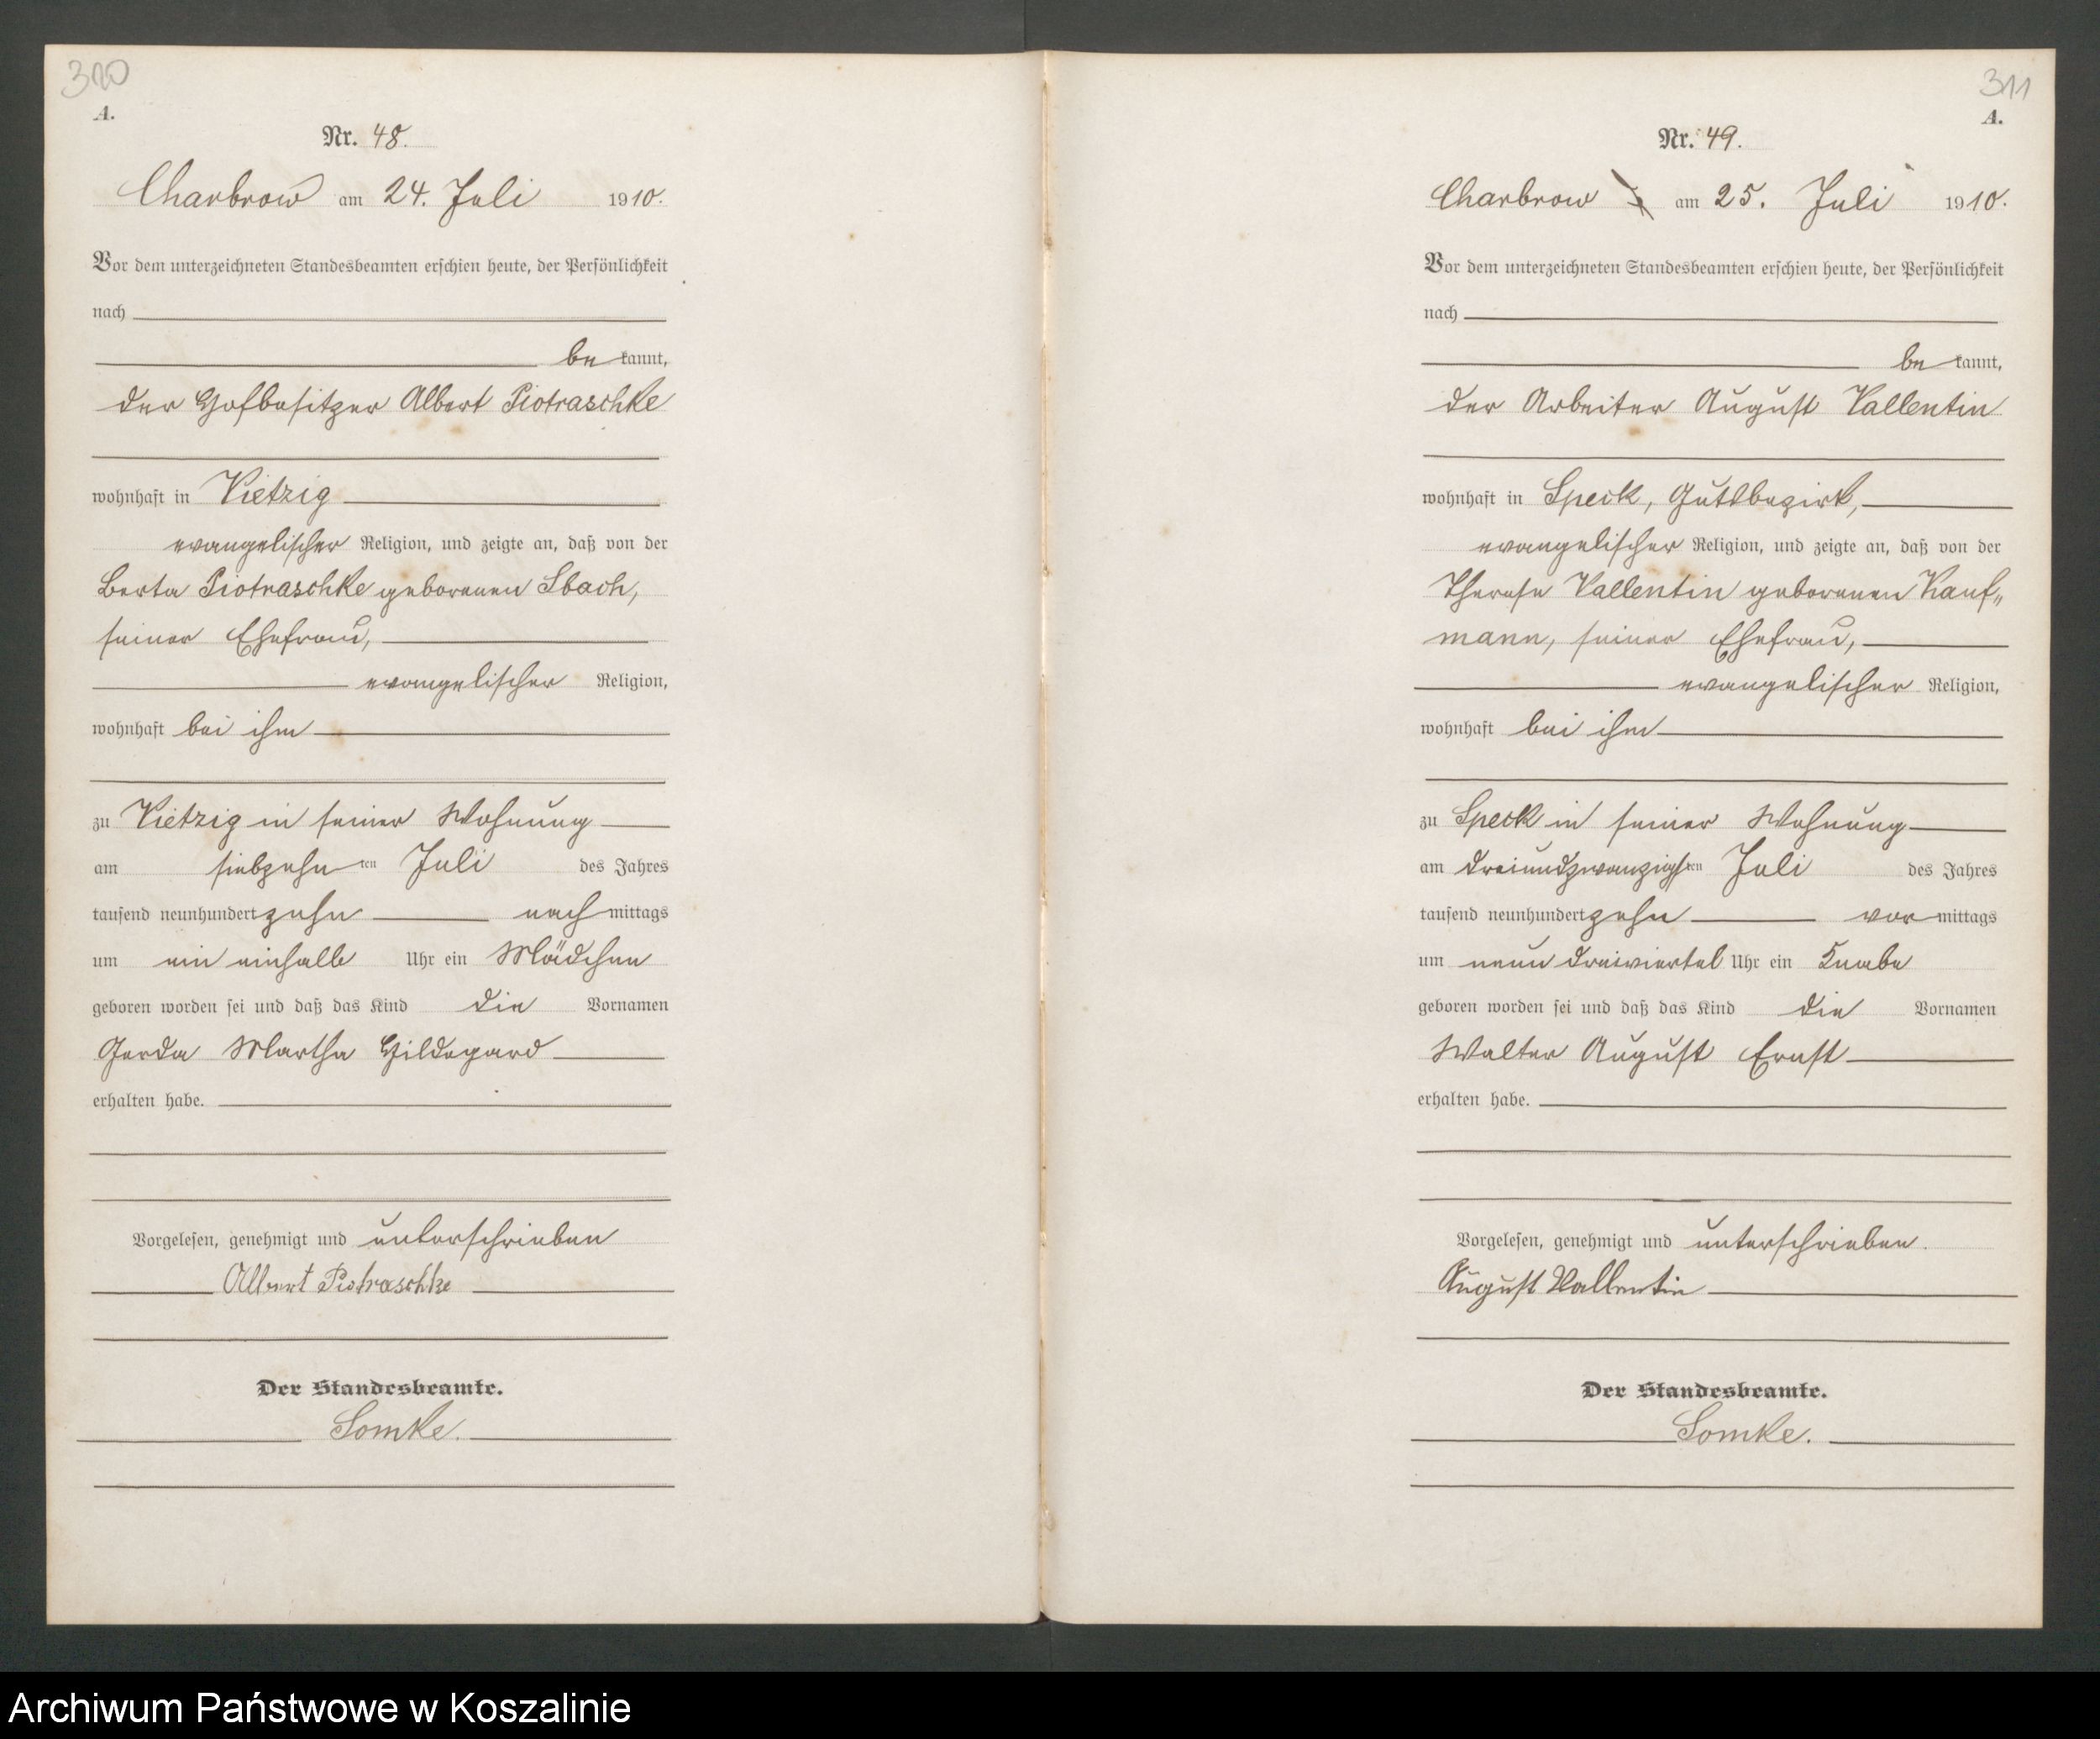 310
A.
Nr. 48.
Charbrow am 24. Juli 1910.
Vor dem unterzeichneten Standesbeamten erschien heute, der Persönlichkeit
nach
be kannt,
der Hofbesitzer Albert Piotraschke
wohnhaft in Vietzig
evangelischer Religion, und zeigte an, daß von der
Berta Piotraschke geborenen Sbach,
seiner Ehefrau,
evangelischer Religion,
wohnhaft bei ihm
zu Vietzig in seiner Wohnung
am siebzehn ten Juli des Jahres
tausend neunhundert zehn nach mittags
um ein einhalb Uhr ein Mädchen
geboren worden sei und daß das Kind die Vornamen
Gerda Martha Hildegard
erhalten habe.
Vorgelesen, genehmigt und unterschrieben
Albert Piotraschke
Der Standesbeamte.
Somke.
311
A.
Nr. 49.
Charbrow am 25. Juli 1910.
Vor dem unterzeichneten Standesbeamten erschien heute, der Persönlichkeit
nach
be kannt,
der Arbeiter August Vallentin
wohnhaft in Speck, Gutsbezirk,
evangelischer Religion, und zeigte an, daß von der
Therese Vallentin geborenen Kauf„
mann, seiner Ehefrau,
evangelischer Religion,
wohnhaft bei ihm
zu Speck in seiner Wohnung
am dreiundzwanzigsten Juli des Jahres
tausend neunhundert zehn vor mittags
um neun dreiviertel Uhr ein Knabe
geboren worden sei und daß das Kind die Vornamen
Walter August Ernst
erhalten habe.
Vorgelesen, genehmigt und unterschrieben.
August Vallentin
Der Standesbeamte.
Somke.
Archiwum Państwowe w Koszalinie